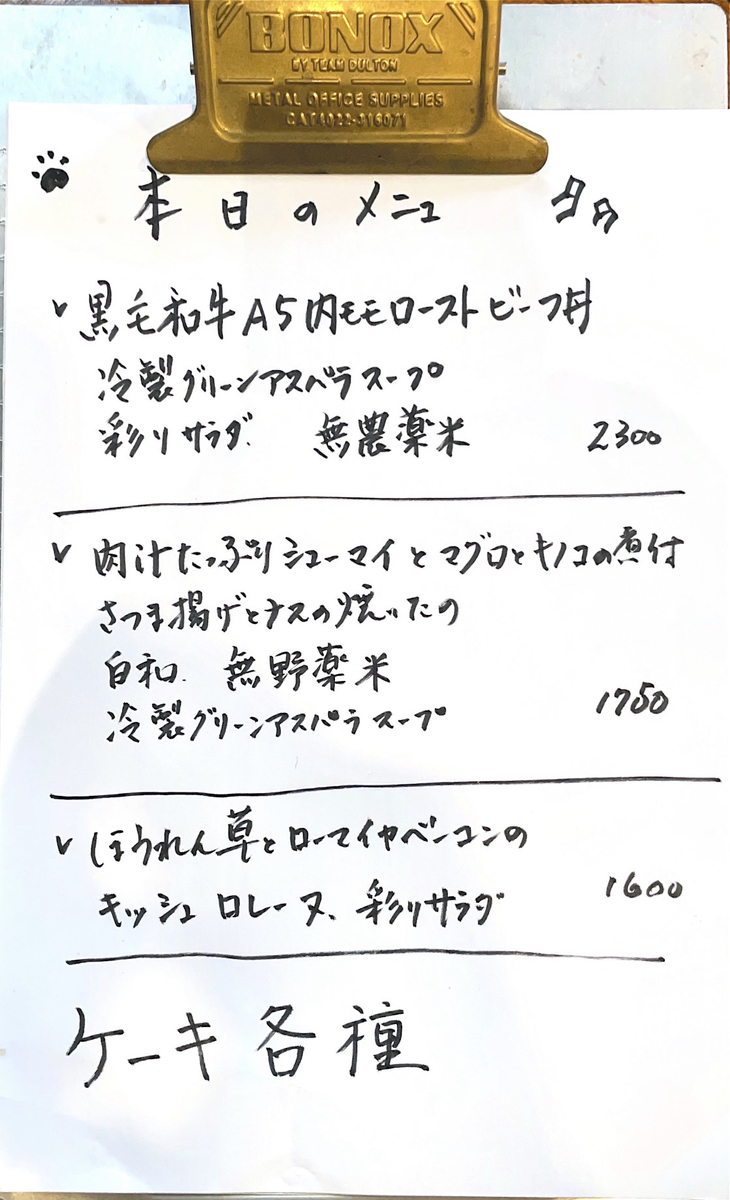 BONOX
BY TEAM DULTON
METAL OFFICE SUPPLIES
本日のメニュ
黒毛和牛A5内モモローストビーフ丼
冷製グリーンアスパラスープ
彩りサラダ. 無農薬米 2300
肉汁たっぷりシューマイとマグロとキノコの煮付
さつま揚げとナスの焼いたの
白和. 無野薬米
冷製グリーンアスパラスープ 1750
ほうれん草とローマイヤベーコンの
キッシュロレーヌ、彩りサラダ 1600
ケーキ各種